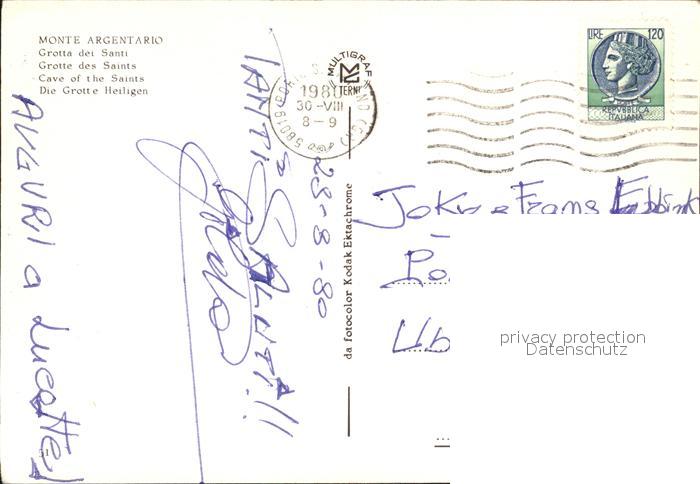 MONTE ARGENTARIO
Grotta dei Santi
Grotte des Saints
Cave of the Saints
Die Grotte Heiligen
MULTIGRAF
TERNI
58019 PORTO S.
1980
30-VIII
8-9
LIRE 120
REPVBBLICA
ITALIANA
AUGURI a Lucette!
TANTI SALUTI!!
28-8-80
da fotocolor Kodak Ektachrome
Frans
privacy protection
Datenschutz